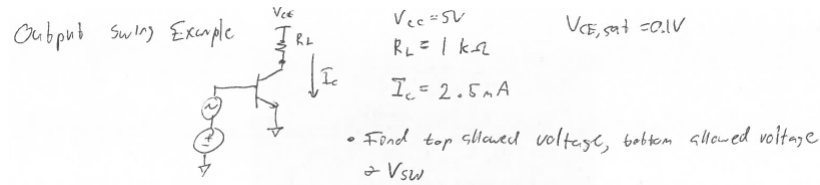 Output Swing Example
VCE
RL
Ic
Vcc = 5V
RL = 1 kΩ
Ic = 2.5mA
VCE,sat = 0.1V
• Find top allowed voltage, bottom allowed voltage
& Vsw